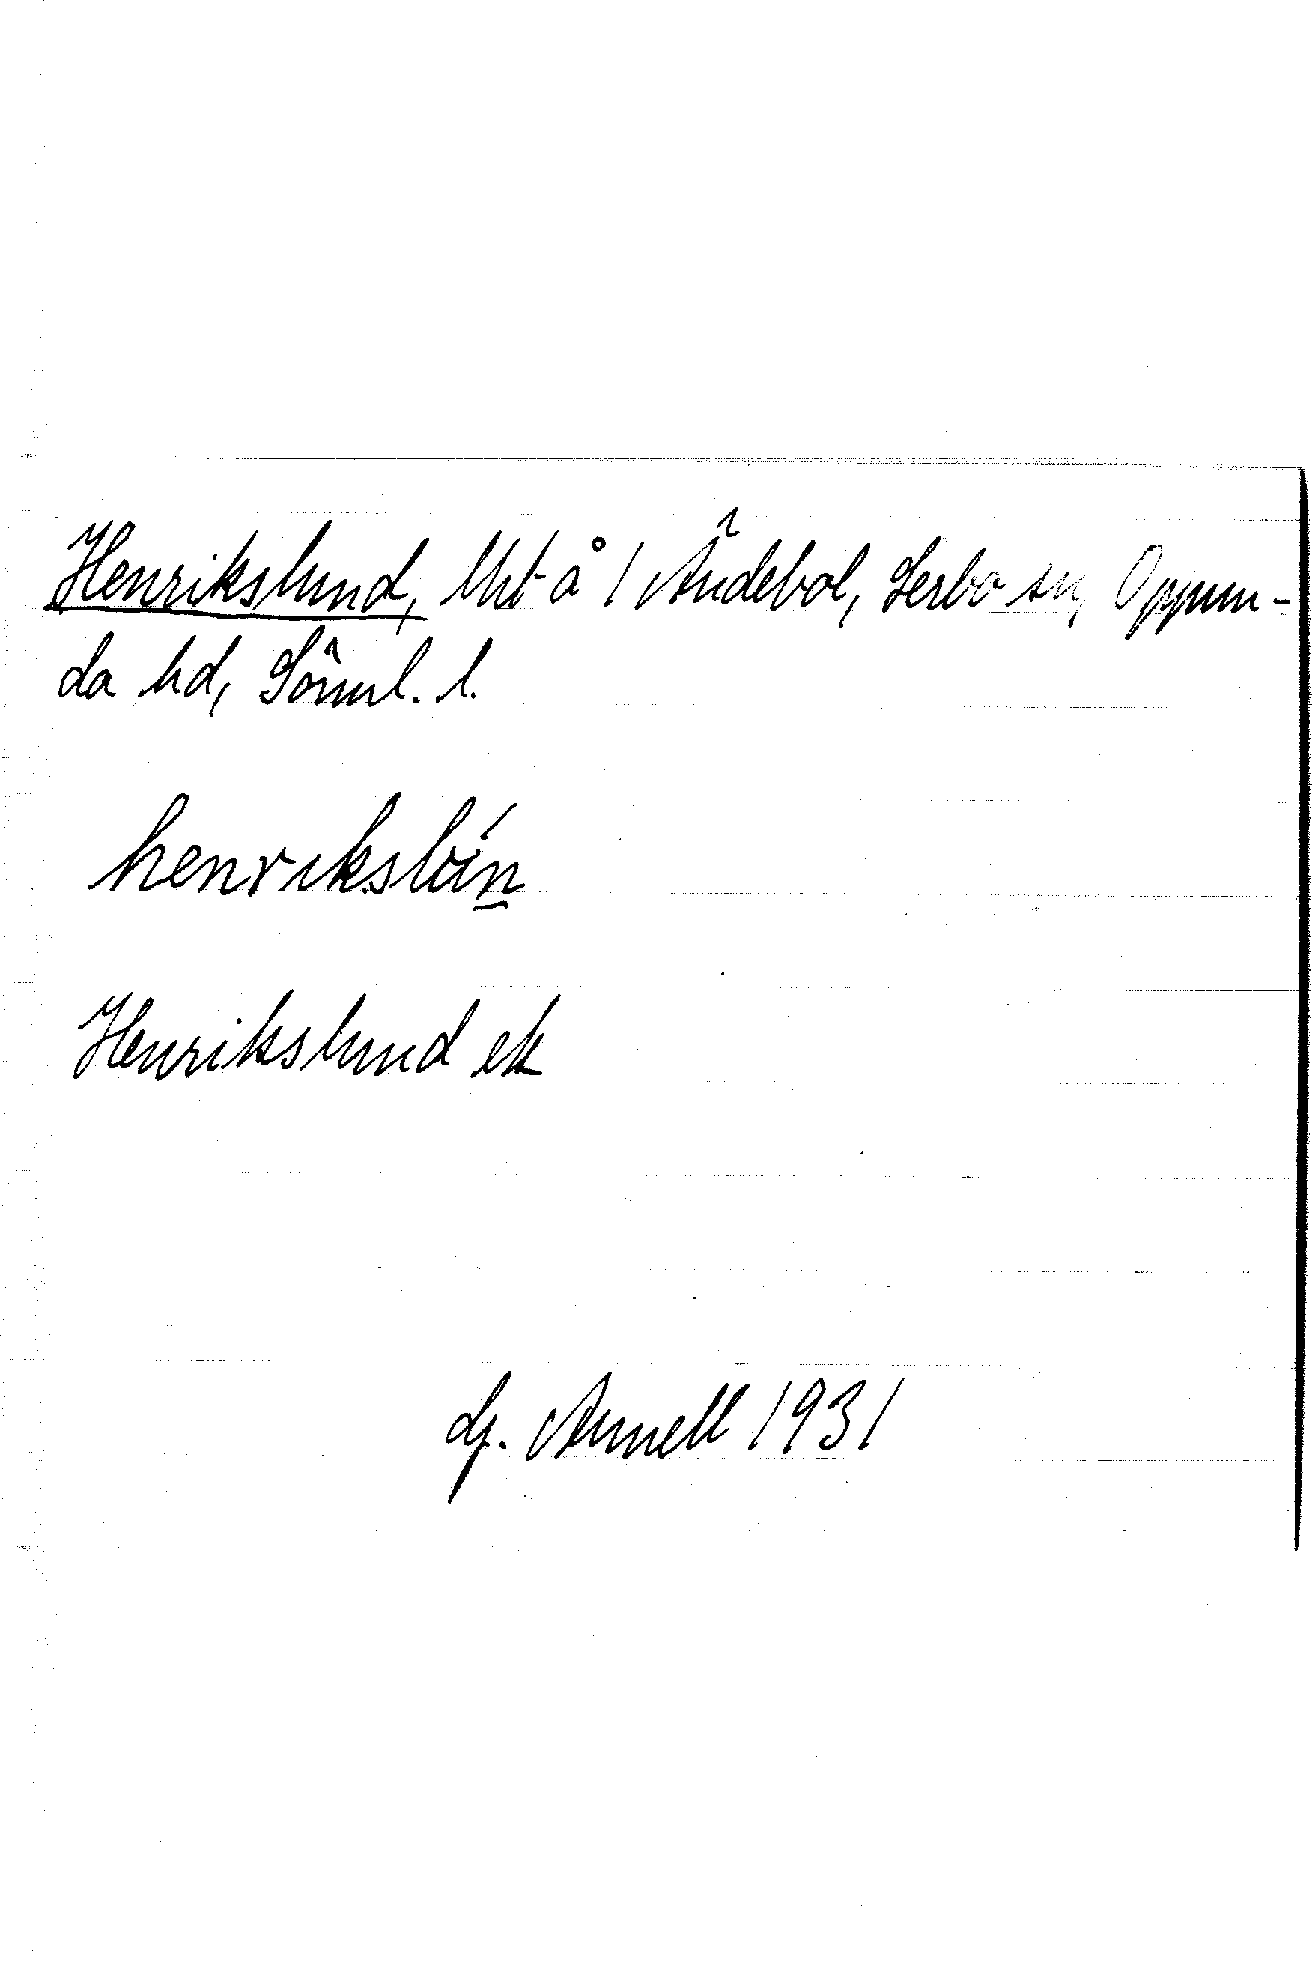 Henrikslund, lht å 1 Ändebol, Lerbo sn, Oppun-
da hd, Söml. l.
henrikslún
Henrikslund ek
Arnell 1931